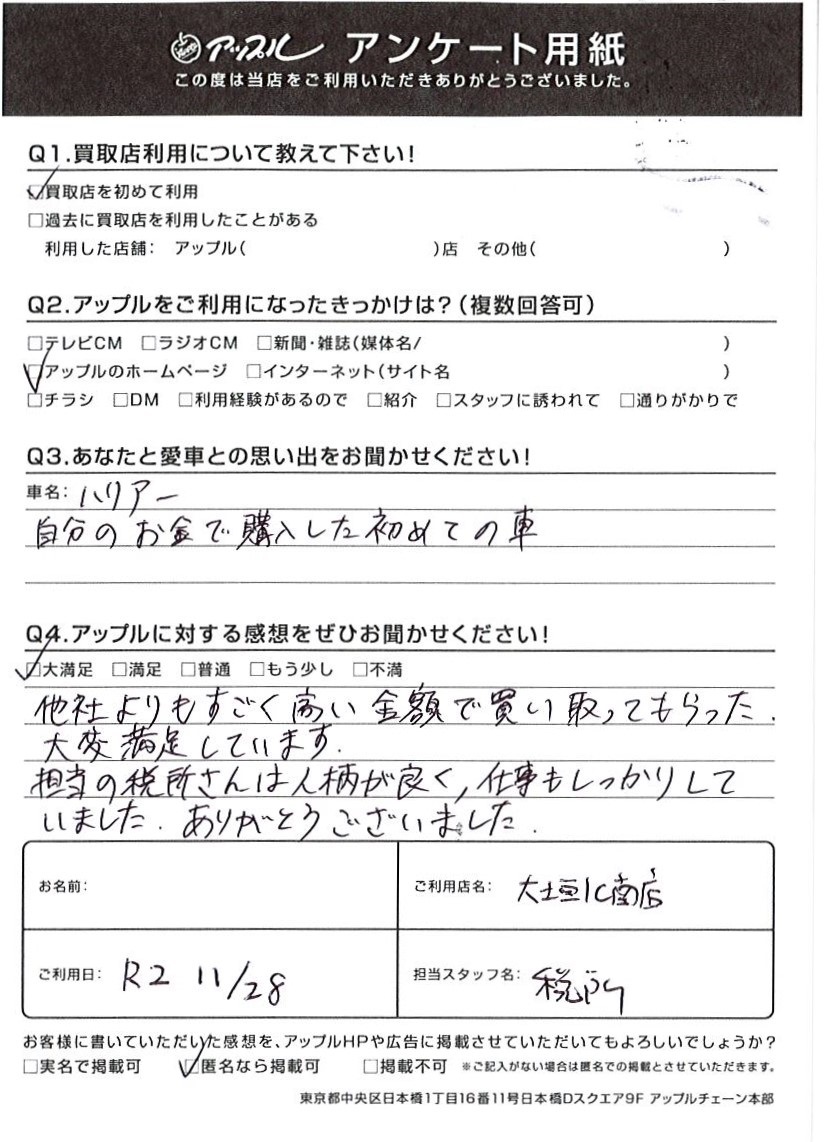 アップル アンケート用紙
この度は当店をご利用いただきありがとうございました。
Q1.買取店利用について教えて下さい!
☑買取店を初めて利用
□過去に買取店を利用したことがある
利用した店舗: アップル( )店 その他( )
Q2.アップルをご利用になったきっかけは?(複数回答可)
□テレビCM □ラジオCM □新聞・雑誌(媒体名/ )
☑アップルのホームページ □インターネット(サイト名 )
□チラシ □DM □利用経験があるので □紹介 □スタッフに誘われて □通りがかりで
Q3.あなたと愛車との思い出をお聞かせください!
車名: ハリアー
自分のお金で購入した初めての車
Q4.アップルに対する感想をぜひお聞かせください!
☑大満足 □満足 □普通 □もう少し □不満
他社よりもすごく高い金額で買い取ってもらった.
大変満足しています.
担当の税所さんは人柄が良く,仕事もしっかりして
いました. ありがとうございました.
お名前:
ご利用店名: 大垣IC南店
ご利用日: R2 11/28
担当スタッフ名: 税所
お客様に書いていただいた感想を、アップルHPや広告に掲載させていただいてもよろしいでしょうか?
□実名で掲載可 ☑匿名なら掲載可 □掲載不可 ※ご記入がない場合は匿名での掲載とさせていただきます。
東京都中央区日本橋1丁目16番11号日本橋Dスクエア9F アップルチェーン本部